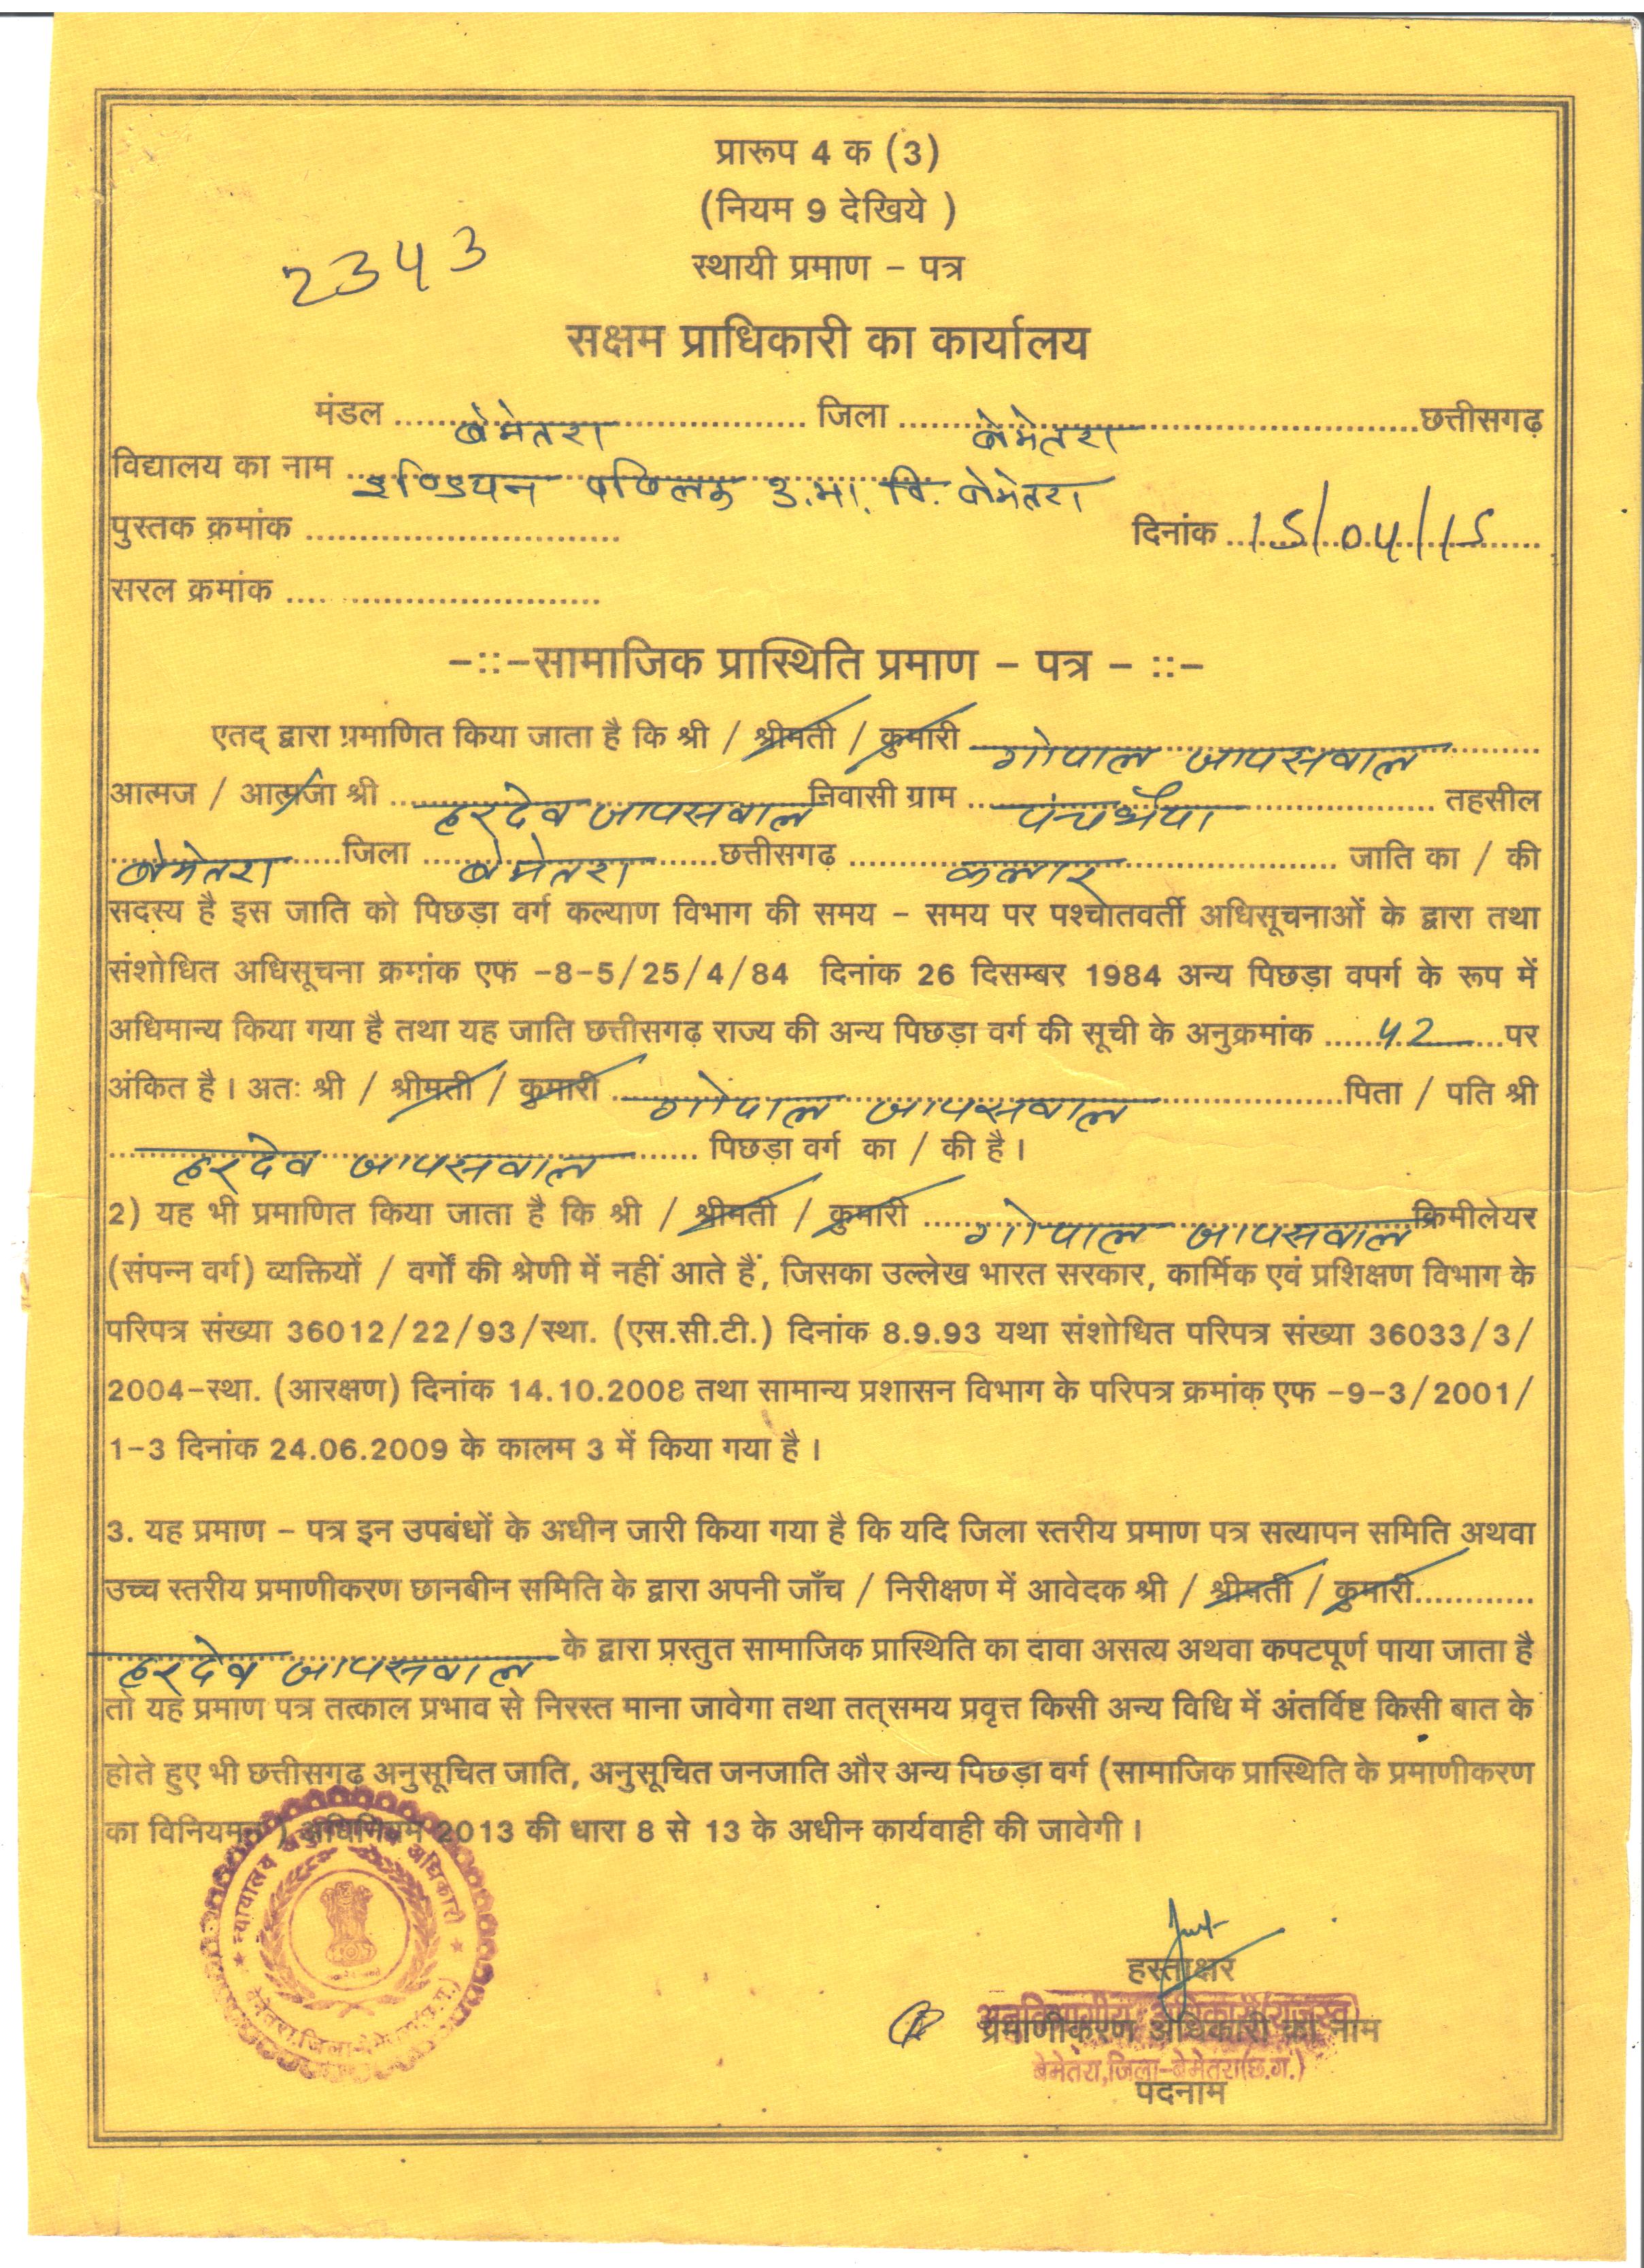 प्रारूप 4 क (3)
(नियम 9 देखिये )
2343
स्थायी प्रमाण - पत्र
सक्षम प्राधिकारी का कार्यालय
मंडल बेमेतरा जिला बेमेतरा छत्तीसगढ़
विद्यालय का नाम इण्डियन पब्लिक उ.मा. वि. बेमेतरा
पुस्तक क्रमांक .............................. दिनांक 15/04/15
सरल क्रमांक ..............................
-::-सामाजिक प्रास्थिति प्रमाण - पत्र - ::-
एतद् द्वारा प्रमाणित किया जाता है कि श्री / श्रीमती / कुमारी गोपाल जायसवाल
आत्मज / आत्मजा श्री हरदेव जायसवाल निवासी ग्राम पंचभैया तहसील
बेमेतरा जिला बेमेतरा छत्तीसगढ़ कलार जाति का / की
सदस्य है इस जाति को पिछड़ा वर्ग कल्याण विभाग की समय - समय पर पश्चातवर्ती अधिसूचनाओं के द्वारा तथा
संशोधित अधिसूचना क्रमांक एफ -8-5/25/4/84 दिनांक 26 दिसम्बर 1984 अन्य पिछड़ा वपर्ग के रूप में
अधिमान्य किया गया है तथा यह जाति छत्तीसगढ़ राज्य की अन्य पिछड़ा वर्ग की सूची के अनुक्रमांक 42 पर
अंकित है। अतः श्री / श्रीमती / कुमारी गोपाल जायसवाल पिता / पति श्री
हरदेव जायसवाल पिछड़ा वर्ग का / की है।
2) यह भी प्रमाणित किया जाता है कि श्री / श्रीमती / कुमारी गोपाल जायसवाल क्रिमीलेयर
(संपन्न वर्ग) व्यक्तियों / वर्गों की श्रेणी में नहीं आते हैं, जिसका उल्लेख भारत सरकार, कार्मिक एवं प्रशिक्षण विभाग के
परिपत्र संख्या 36012/22/93/स्था. (एस.सी.टी.) दिनांक 8.9.93 यथा संशोधित परिपत्र संख्या 36033/3/
2004-स्था. (आरक्षण) दिनांक 14.10.2008 तथा सामान्य प्रशासन विभाग के परिपत्र क्रमांक एफ -9-3/2001/
1-3 दिनांक 24.06.2009 के कालम 3 में किया गया है।
3. यह प्रमाण - पत्र इन उपबंधों के अधीन जारी किया गया है कि यदि जिला स्तरीय प्रमाण पत्र सत्यापन समिति अथवा
उच्च स्तरीय प्रमाणीकरण छानबीन समिति के द्वारा अपनी जाँच / निरीक्षण में आवेदक श्री / श्रीमती / कुमारी.............
हरदेव जायसवाल के द्वारा प्रस्तुत सामाजिक प्रास्थिति का दावा असत्य अथवा कपटपूर्ण पाया जाता है
तो यह प्रमाण पत्र तत्काल प्रभाव से निरस्त माना जावेगा तथा तत्समय प्रवृत्त किसी अन्य विधि में अंतर्विष्ट किसी बात के
होते हुए भी छत्तीसगढ़ अनुसूचित जाति, अनुसूचित जनजाति और अन्य पिछड़ा वर्ग (सामाजिक प्रास्थिति के प्रमाणीकरण
का विनियमन ) अधिनियम 2013 की धारा 8 से 13 के अधीन कार्यवाही की जावेगी।
न्यायालय अधिकारी
बेमेतरा, जिला-बेमेतरा (छ.ग.)
हस्ताक्षर
अनुविभागीय अधिकारी (राजस्व)
प्रमाणीकरण अधिकारी का नाम
बेमेतरा, जिला-बेमेतरा(छ.ग.)
पदनाम